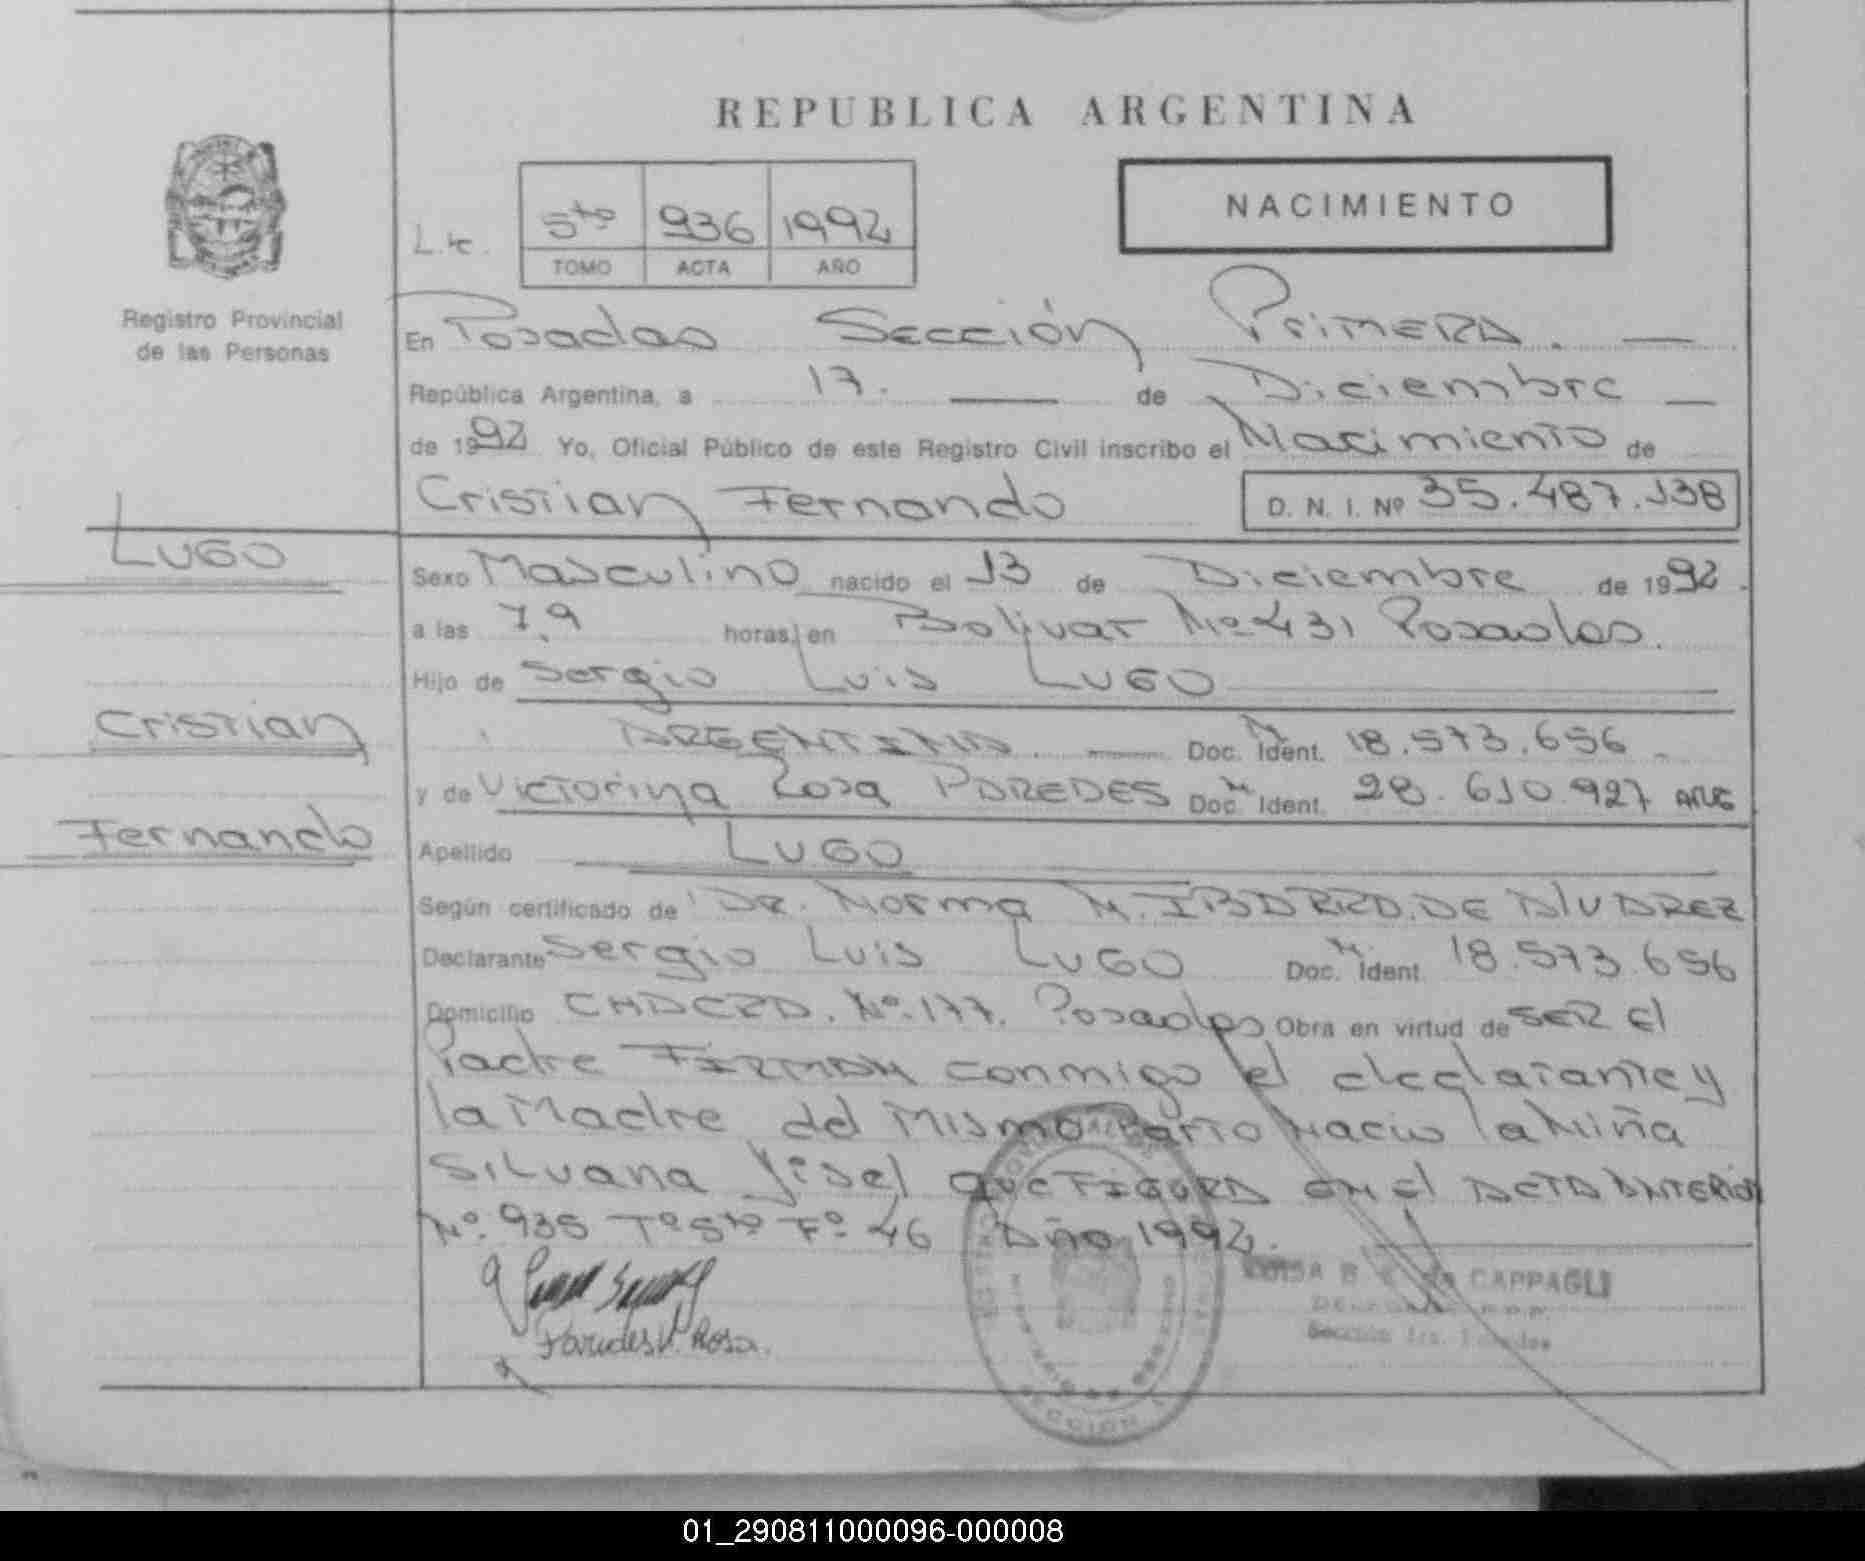 REPUBLICA ARGENTINA
NACIMIENTO
L. 1c.
5to 936 1992
TOMO ACTA AÑO
Registro Provincial
de las Personas
En Posadas Sección Primera.
República Argentina, a 17. de Diciembre
de 1992 Yo, Oficial Público de este Registro Civil inscribo el Nacimiento de
Cristian Fernando D. N. I. Nº 35.487.138
LUGO
Sexo Masculino nacido el 13 de Diciembre de 1992.
a las 7,9 horas, en Bolivar Nº 431 Posadas.
Hijo de Sergio Luis LUGO
Cristian
ARGENTINA. Doc. Ident. 18.573.656
y de Victorina Rosa PAREDES Doc. Ident. 28.610.927 ARG
Fernando
Apellido LUGO
Según certificado de Dr. Norma M. IBARRA. DE ALVAREZ
Declarante Sergio Luis LUGO Doc. Ident. 18.573.656
Domicilio CHACRA. Nº. 177. Posadas Obra en virtud de SER El
Padre FIRMAN conmigo el declarante y
la Madre del Mismo Parto Nacio la Niña
SILvana Yisel que FIGURA en el ACTA ANTERIOR
Nº. 935 Tº 5to Fº 46 Año 1992.
Paredes V. Rosa.
CAPPAGLI
SECCION
01_290811000096-000008